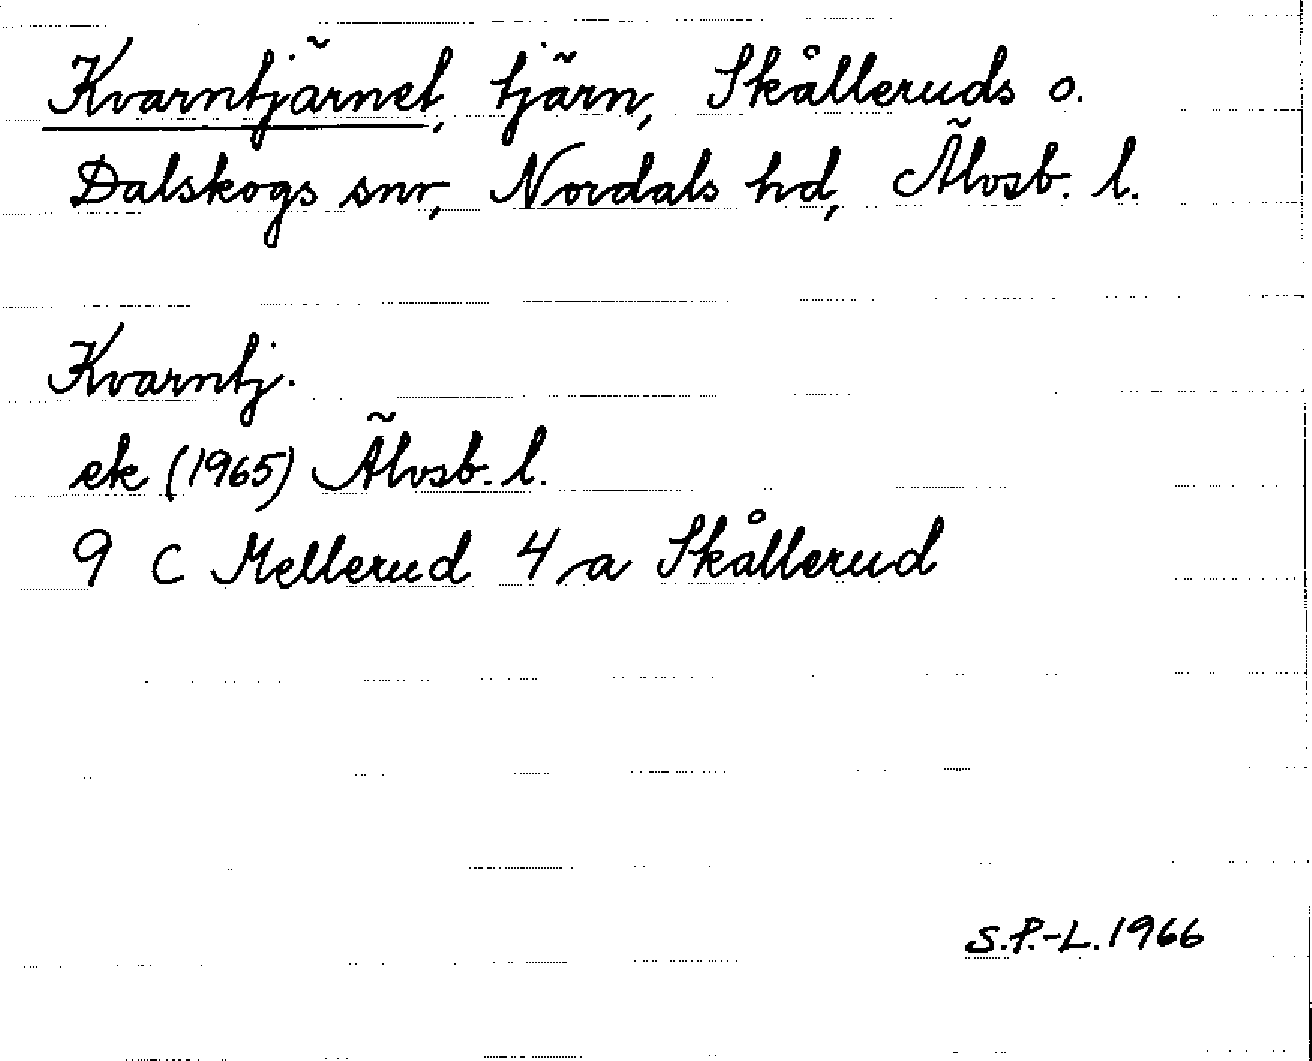 Kvarntjärnet, tjärn, Skålleruds o.
Dalskogs snr, Nordals hd, Älvsb. l.
Kvarntj.
ek (1965) Älvsb. l.
9 C Mellerud 4 a Skållerud
S.P.-L. 1966